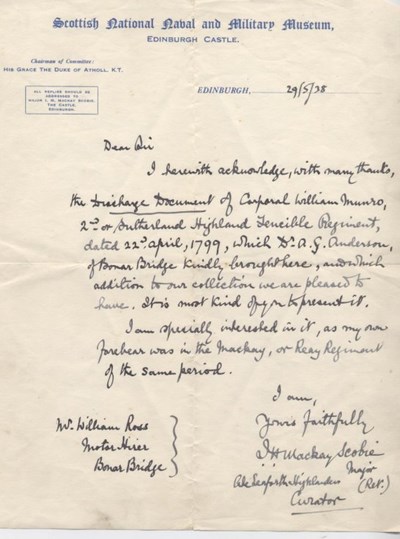 Scottish National Naval and Military Museum,
EDINBURGH CASTLE.
Chairman of Committee:
HIS GRACE THE DUKE OF ATHOLL, K.T.
ALL REPLIES SHOULD BE
ADDRESSED TO
MAJOR I. H. MACKAY SCOBIE,
THE CASTLE,
EDINBURGH.
EDINBURGH, 29/5/38
Dear Sir
I herewith acknowledge, with many thanks,
the Discharge Document of Corporal William Munro,
2nd or Sutherland Highland Fencible Regiment,
dated 22nd April, 1799, which Dr. A. G. Anderson,
of Bonar Bridge kindly brought here, and which
addition to our collection we are pleased to
have. It is most kind of you to present it.
I am specially interested in it, as my own
forebear was in the Mackay, or Reay Regiment
of the same period.
I am,
Yours faithfully
I H Mackay Scobie
Major
late Seaforth Highlanders (Ret.)
Curator
Mr. William Ross
Motor Hirer
Bonar Bridge